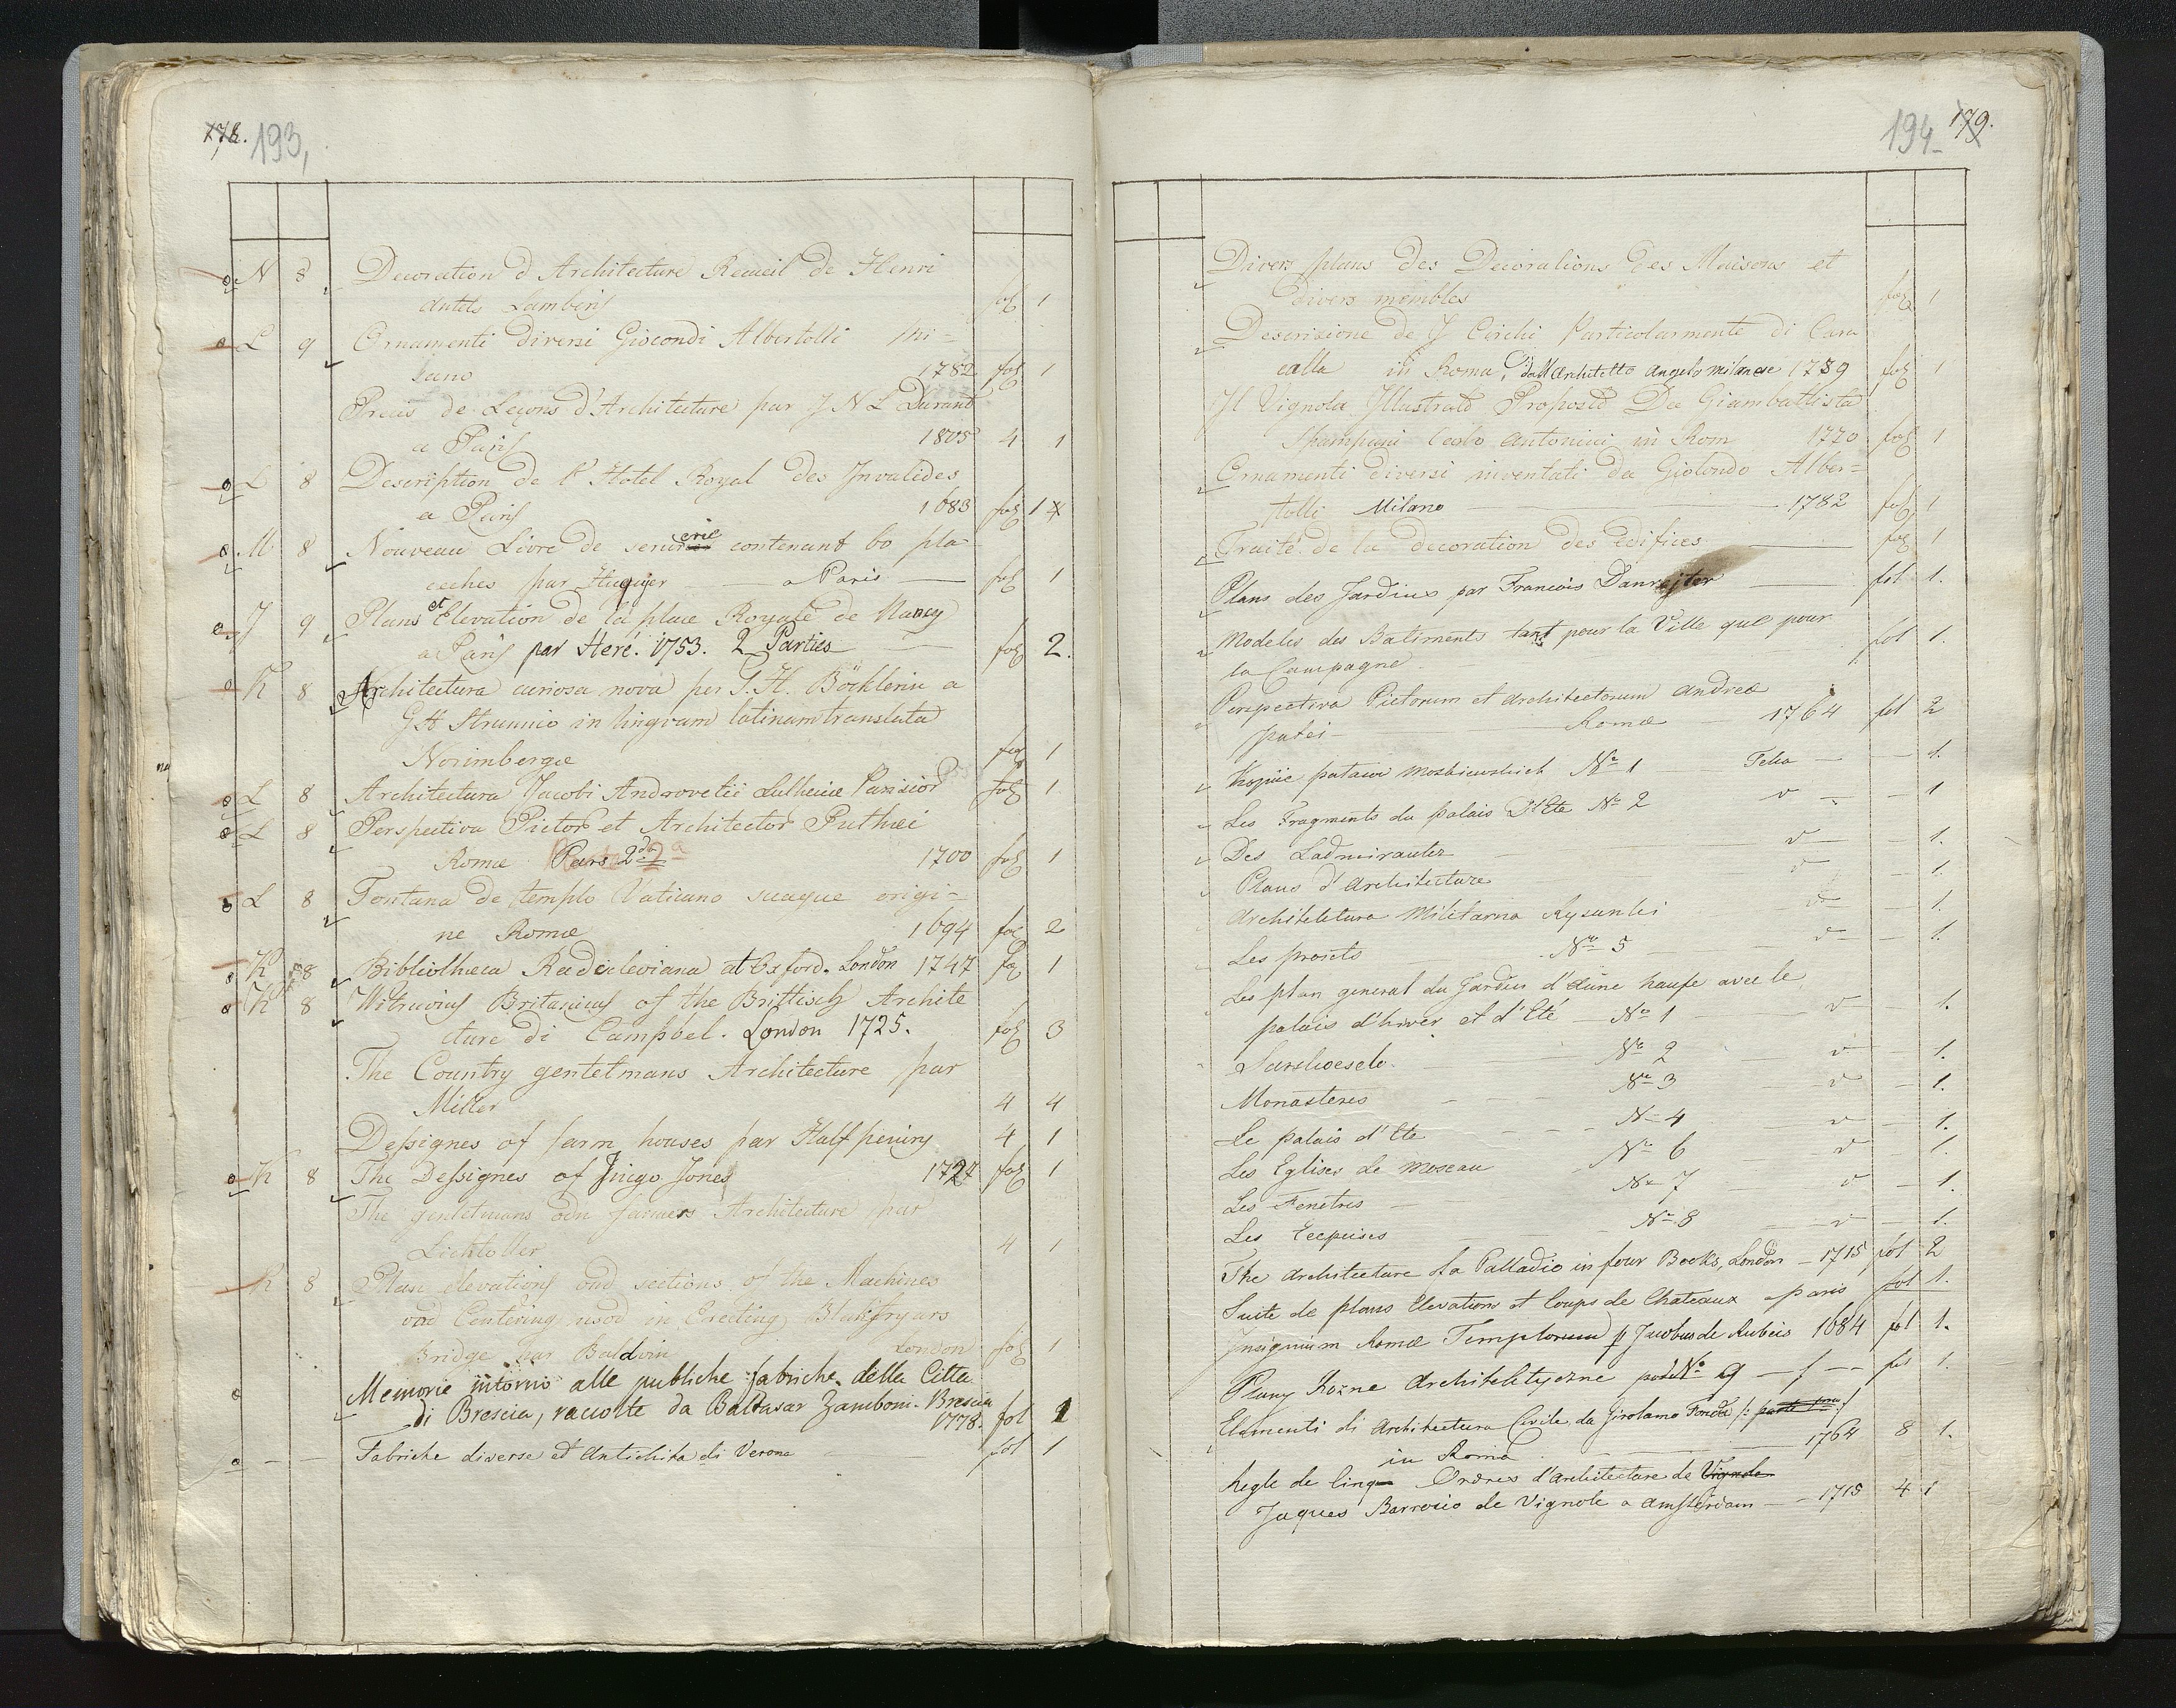 178. 193,
N 8 Decoration d Architecture Recueil de Henri
fol 1
L 9 Ornamenti diversi Giocondi Albertolli Mi=
lano 1782 fol 1
Precis de Leçons d'Architecture par J N L Durand
a Paris 1805 4 1
L 8 Description de l'Hotel Royal des Invalides
a Paris 1683 fol 1
M 8 Nouveau Livre de serurerie contenant 60 pla
ches par Huquier — a Paris — fol 1
J 9 Plans et Elevation de la place Royale de Nancy
a Paris par Heré. 1753. 2 Parties — fol 2.
K 8 Architectura curiosa nova per G. A. Böcklerin a
in linguam latinam translata
Norimbergæ fol 1
L 8 Architectura Jacobi Androvetii Parisior fol 1
L 8 Perspectiva Pictor et Architector Puthei
Romæ Pars 2da 1700 fol 1
L 8 Fontana de templo Vaticano suaque origi=
ne Romæ 1694 fol 2
K 8 Bibliotheca Radcleviana at Oxford. London 1747 fol 1
K 8 Witruvius Britanicus of the Brittisch Archite
cture di Campbel. London 1725. fol 3
The Country gentelmans Architecture par
Miller 4 4
Dessignes of farm houses par Halfpeniny 4 1
K 8 The Dessignes of Jnigo Jones 1727 fol 1
The gentelmans farmers Architecture par
4 1
K 8 Plan elevations and sections of the Machines
and Centering used in Erecting Blakfryars
Bridge par Baldwin London fol 1
Memorie intorno alle publiche fabriche della Citta
di Brescia, raccolte da Baltasar Zamboni. Brescia
1778. fol 1
— — Fabriche diverse ed Antichita di Verona — fol 1
194 179.
Divers plans des Decorations des Maisons et
divers meubles fol 1
Descrizione de J Circhi Particolarmente di Cara
calla in Roma, dall Architetto Angelo milanese 1789 fol 1
Il Vignola Illustrato Proposto Da Giambattista
Spampani Carlo Antonini in Rom 1770 fol 1
Ornamenti diversi inventati da Giolondo Alber=
tolli Milano — 1782 fol 1
Traité de la decoration des Edifices — fol 1
Plans des Jardins par Francois Danrejter — fol 1.
Modeles des Batiments tant pour la Ville que pour
la Campagne. fol 1.
Perspectiva Pictorum et Architectorum Andreæ
putei — Romæ — 1764 fol 2
Kopije pałacow Moskiewskich No 1 Teka — — 1.
Les Fragments du palais D'Ete No 2 v — — 1
Des Ladmirautez v — — 1.
Plans d'Architecture v — 1.
Architektura Militarna Rysunki v — 1.
Les proiets — No 5 — v — 1.
Les plan general du Jardin d'une hause avec le
palais d'hiver et d'Eté No 1 — v — 1.
Sarskoeselo. — No 2 v — 1.
Monasteres — No 3 — v — 1.
Le palais d'Ete — No 4 v — 1.
Les Eglises de Moscau No 6 v — 1.
Les Fenetres — No 7 v — 1.
Les — No 8 — v — 1.
The Architecture fa Palladio in four Books, London — 1715 fol 2
Suite de plans Elevations et Coups de Chateaux — paris fol 1.
Insignium Romæ Templorum p Jacobus de Rubeis 1684 fol 1.
Plany Rozne Architektyczne pod No 9 — fol 1.
Elementi di Architectura Civile da Girolamo Fonda /: parte pma :/
in Roma — 1764 8 1.
Regle de Cinq Ordres d'Architecture de Vignole
Jaques Barrozio de Vignole a Amsterdam — 1715 4 1